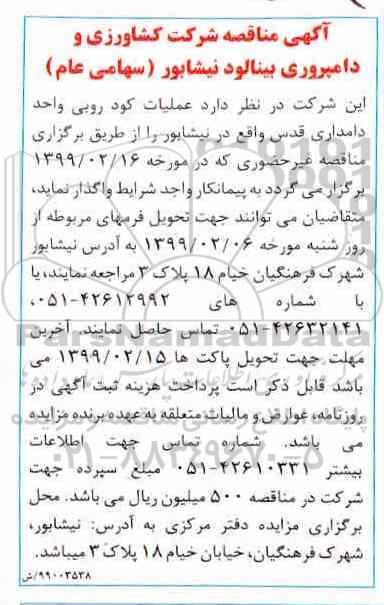 آگهی مناقصه شرکت کشاورزی و
دامپروری بینالود نیشابور (سهامی عام)
این شرکت در نظر دارد عملیات کود روبی واحد
دامداری قدس واقع در نیشابور را از طریق برگزاری
مناقصه غیرحضوری که در مورخه ۱۳۹۹/۰۲/۱۶
برگزار می گردد به پیمانکار واجد شرایط واگذار نماید،
متقاضیان می توانند جهت تحویل فرمهای مربوطه از
روز شنبه مورخه ۱۳۹۹/۰۲/۰۶ به آدرس نیشابور
شهرک فرهنگیان خیام ۱۸ پلاک ۳ مراجعه نمایند، یا
با شماره های ۰۵۱-۴۲۶۱۲۹۹۲،
۰۵۱-۴۲۶۳۲۱۴۱ تماس حاصل نمایند. آخرین
مهلت جهت تحویل پاکت ها ۱۳۹۹/۰۲/۱۵ می
باشد قابل ذکر است پرداخت هزینه ثبت آگهی در
روزنامه، عوارض و مالیات متعلقه به عهده برنده مزایده
می باشد. شماره تماس جهت اطلاعات
بیشتر ۰۵۱-۴۲۶۱۰۳۳۱ مبلغ سپرده جهت
شرکت در مناقصه ۵۰۰ میلیون ریال می باشد. محل
برگزاری مزایده دفتر مرکزی به آدرس: نیشابور،
شهرک فرهنگیان، خیابان خیام ۱۸ پلاک ۳ میباشد.
۹۹۰۰۳۵۳۸/ش
ParsNamadData
۰۲۱-۸۸۳۴۹۶۷۰-۵